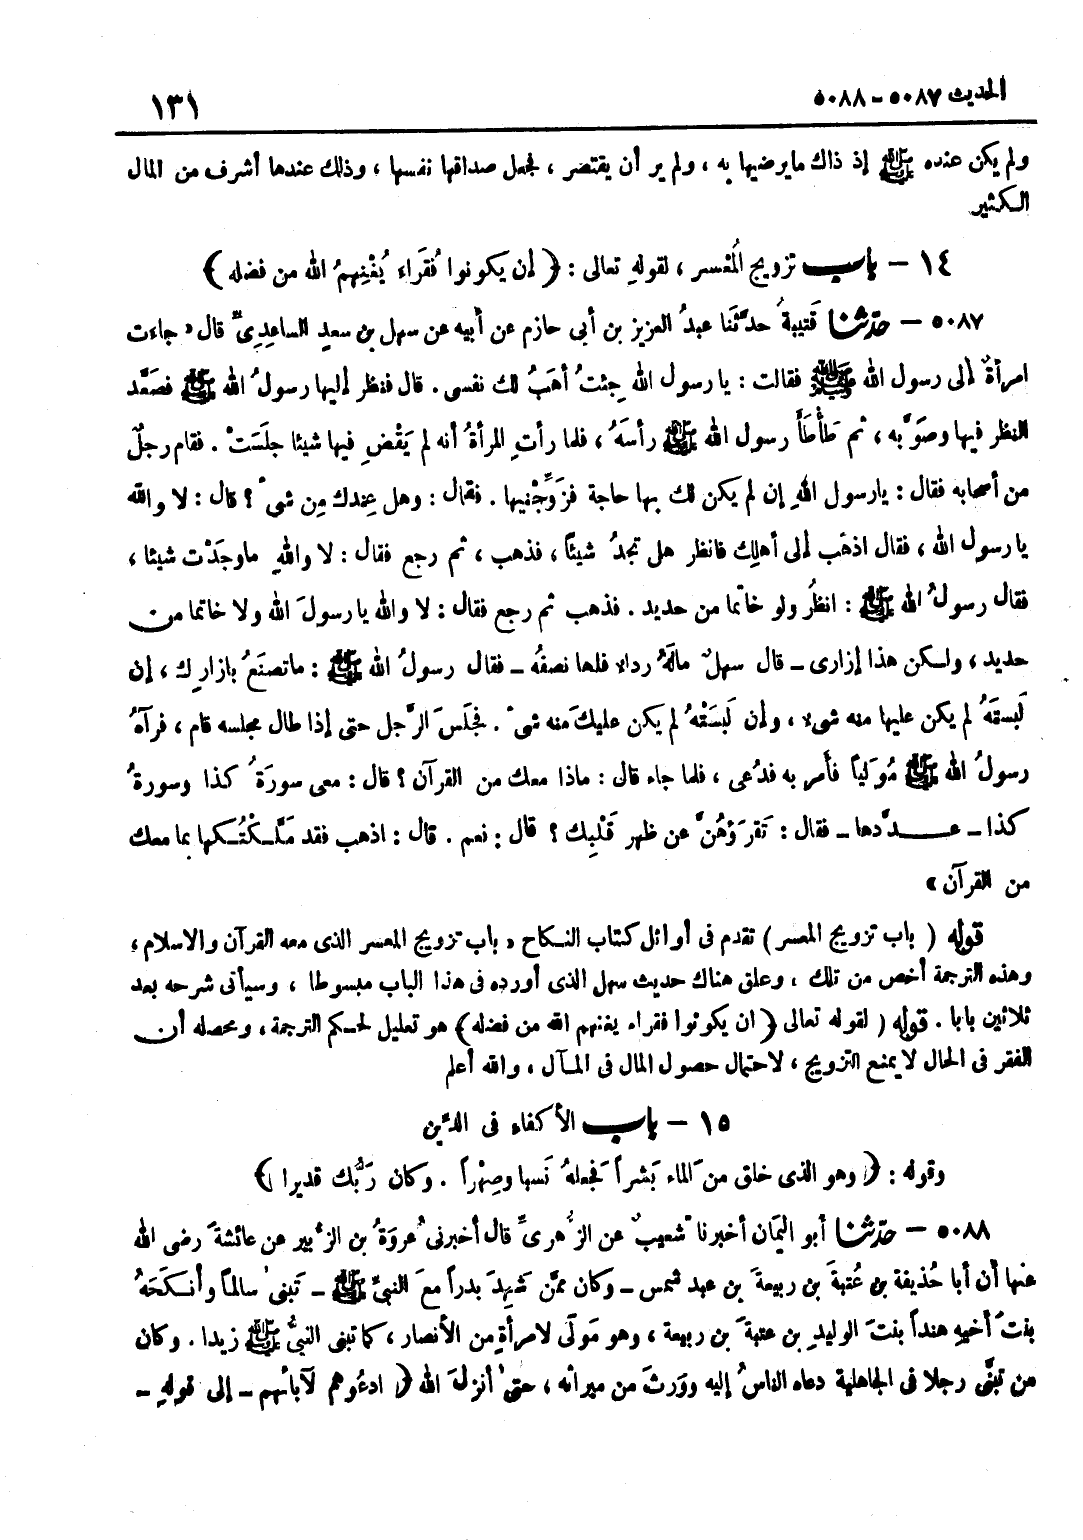 الحديث ٥٠٨٧ – ٥٠٨٨
١٣١
ولم يكن عنده ﷺ إذ ذاك مايرضيها به ، ولم ير أن يقتصر ، فجعل صداقها نفسها ، وذلك عندها أشرف من المال
الكثير
١٤ – باب تزويج المُعْسر ، لقولهِ تعالى : ﴿ إن يكونوا فُقَراء يُغْنِهمُ الله من فضله ﴾
٥٠٨٧ – حدّثنا قتيبةُ حدَّثَنا عبدُ العزيز بن أبى حازم عن أبيه عن سهلِ بن سعدٍ الساعدِىِّ قال « جاءت
امرأةٌ إلى رسول الله ﷺ فقالت : يا رسول الله جِئتُ أهَبُ لك نفسى . قال فنظر إليها رسولُ الله ﷺ فصَعَّد
النظر فيها وصَوَّبه ، ثم طأْطَأَ رسول الله ﷺ رأسَهُ ، فلما رأتِ المرأةُ أنه لم يَقْضِ فيها شيئا جلَسَتْ . فقام رجلٌ
من أصحابه فقال : يارسول اللهِ إن لم يكن لك بها حاجة فزَوِّجْنيها . فقال : وهل عِندك مِن شىْء ؟ قال : لا والله
يا رسول الله ، فقال اذهَب إلى أهلِك فانظر هل تجدُ شيئاً ، فذهب ، ثم رجع فقال : لا واللهِ ماوجَدْت شيئا ،
فقال رسولُ الله ﷺ : انظُر ولو خاتما من حديد . فذهب ثم رجع فقال : لا والله يا رسولَ الله ولا خاتما من
حديد ، ولكن هذا إزارى – قال سهلٌ مالَهُ رداء فلها نصفُه – فقال رسولُ الله ﷺ : ماتصنَعُ بازارِك ، إن
لَبستَهُ لم يكن عليها منه شىء ، وإن لَبسَتْهُ لم يكن عليكَ منه شىْء . فجلَسَ الرَّجل حتى إذا طال مجلسه قام ، فرآهُ
رسولُ الله ﷺ مُوَلياً فأمر به فدُعى ، فلما جاء قال : ماذا معك من القرآن ؟ قال : معى سورَةُ كذا وسورةُ
كذا – عدَّدها – فقال : تَقرَؤهُنَّ عن ظهر قَلْبِك ؟ قال : نعم . قال : اذهب فقد مَلَّكْتُكها بما معك
من القرآن »
قوله ( باب تزويج المعسر ) تقدم فى أوائل كتاب النكاح « باب تزويج المعسر الذى معه القرآن والاسلام ،
وهذه الترجمة أخص من تلك ، وعلق هناك حديث سهل الذى أورده فى هذا الباب مبسوطا ، وسيأتى شرحه بعد
ثلاثين بابا . قوله ( لقوله تعالى ﴿ ان يكونوا فقراء يغنهم الله من فضله ﴾ هو تعليل لحكم الترجمة ، ومحصله أن
الفقر فى الحال لا يمنع التزويج ، لاحتمال حصول المال فى المآل ، والله أعلم
١٥ – باب الأكفاء فى الدِّين
وقوله : ﴿ وهو الذى خلق منَ الماء بَشراً فَجعلهُ نَسبا وصِهْراً . وكان رَبُّك قديرا ﴾
٥٠٨٨ – حدّثنا أبو اليَمان أخبرنا شعيبٌ عن الزُّهرىِّ قال أخبرنى عُروَةُ بن الزُّبير عن عائشةَ رضى الله
عنها أن أبا حُذيفة بن عُتبةَ بن ربيعةَ بن عبد شمس – وكان ممَّن شَهِدَ بدراً معَ النبىِّ ﷺ – تَبنى سالماً وأنكَحَهُ
بنْتَ أخيهِ هنداً بنتَ الوليدِ بن عتبةَ بن ربيعة ، وهو مَولًى لامرأةٍ مِن الأنصار ، كما تبنى النبىُّ ﷺ زيدا . وكان
من تبنَّى رجلا فى الجاهلية دعاه الناسُ إليه ووَرثَ من ميراثه ، حتىٰ أنزلَ الله ﴿ ادعُوهم لآبائهم – إلى قولهِ –